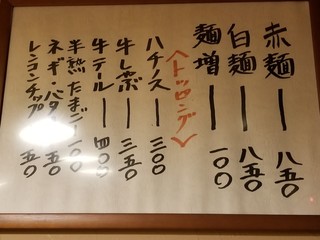 赤麺 — 八五〇
白麺 — 八五〇
麺増 — 一〇〇
〈トッピング〉
ハチノス — 三〇〇
牛しぐれ — 三五〇
牛テール — 四〇〇
半熟たまご — 一〇〇
ネギ・バター 五〇
レンコンチップ 五〇